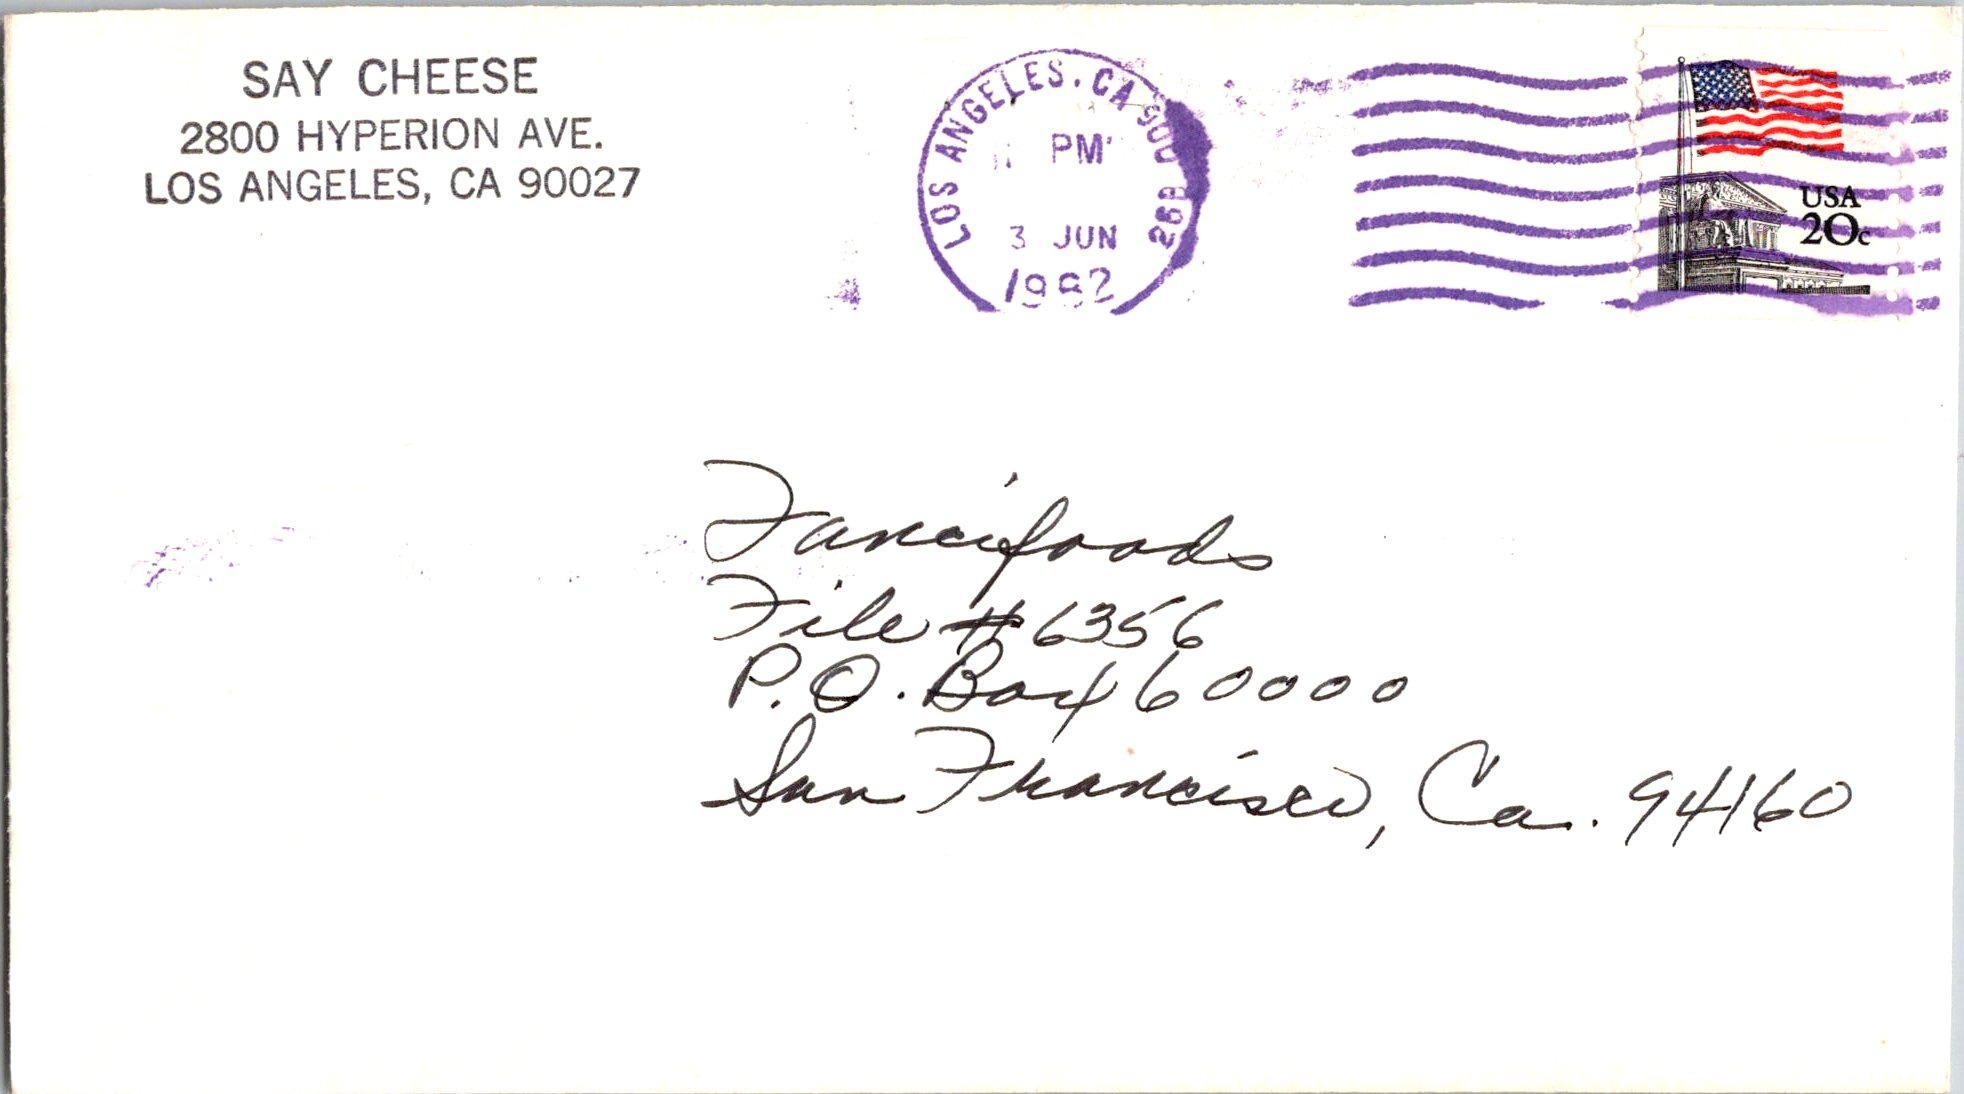 SAY CHEESE
2800 HYPERION AVE.
LOS ANGELES, CA 90027
LOS ANGELES, CA 900
PM
3 JUN
1982
USA
20c
Fancifoods
File #6356
P.O. Box 60000
San Francisco, Ca. 94160